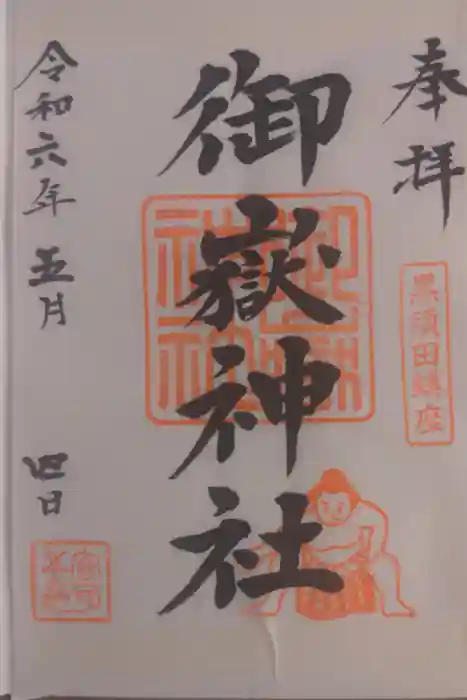 奉拝
黒須田鎮座
御嶽神社
令和六年五月四日